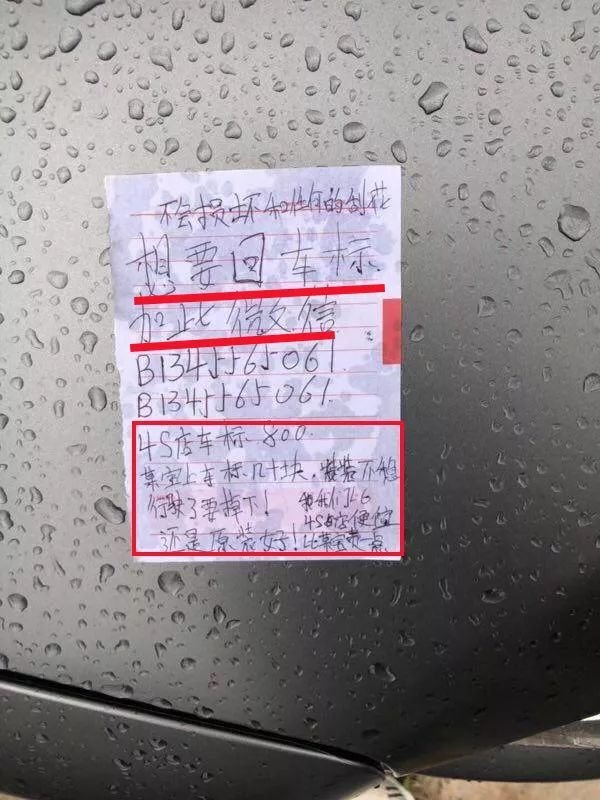 不会损坏和任何的刮花
想要回车标
加此微信
B1345565061.
B1345565061.
4S店车标800.
某宝上车标几十块,安装不稳
行驶了要掉下!
还是原装好!
我们比
4S店便宜
比某宝贵一点